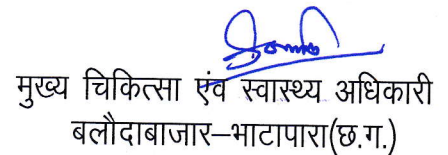 मुख्य चिकित्सा एंव स्वास्थ्य अधिकारी
बलौदाबाजार–भाटापारा(छ.ग.)